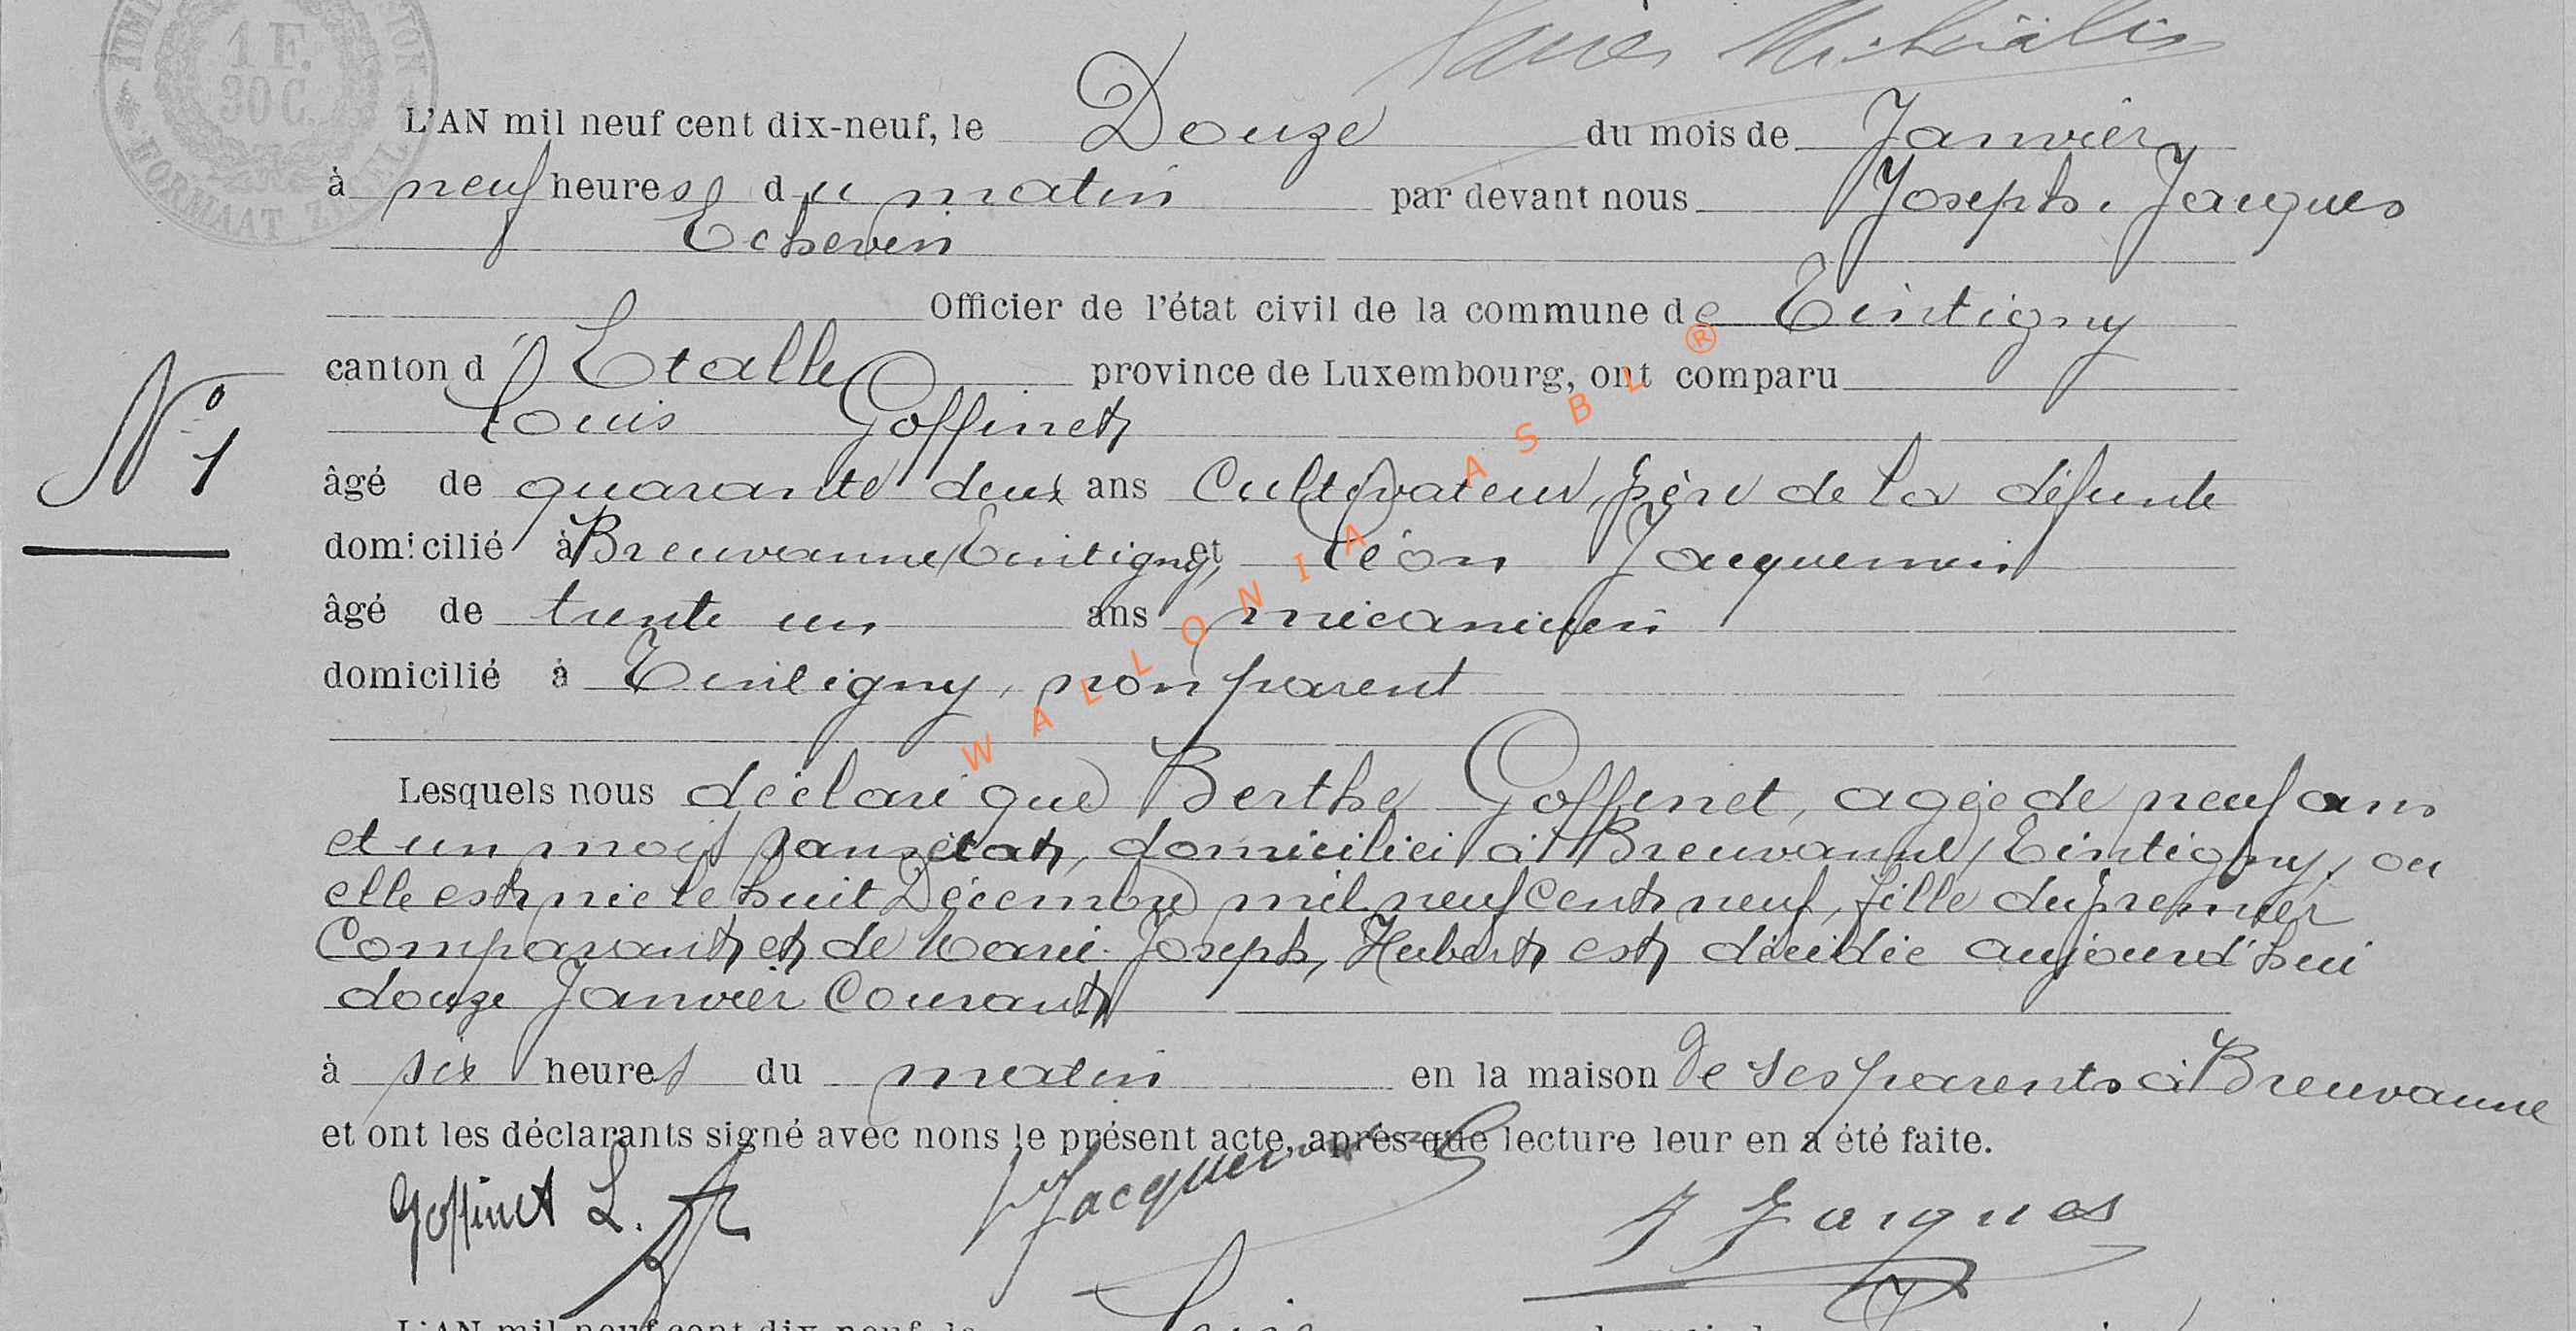 1 F.
30 C.
FORMAAT ZEGEL
L'AN mil neuf cent dix-neuf, le Douze du mois de Janvier
à neuf heures du matin par devant nous Joseph. Jacques
Echevin
Officier de l'état civil de la commune de Tintigny
canton d'Etalle province de Luxembourg, ont comparu
Louis Goffinet
N° 1
âgé de quarante deux ans Cultivateur, père de la défunte
domicilié à Breuvanne/Tintigny, et Léon Jacquemin
âgé de trente un ans mécanicien
domicilié à Tintigny, non parent
WALLONIA ASBL ®
Lesquels nous déclaré que Berthe Goffinet, agée de neuf ans
et un mois sans état, domiciliée à Breuvanne/Tintigny, ou
elle est née le huit Décembre mil neuf Cent neuf, fille du premier
Comparant et de Marie Joseph, Hubert est décédée aujourd'hui
douze Janvier Courant
à six heures du matin en la maison de ses parents à Breuvanne
et ont les déclarants signé avec nons le présent acte, après que lecture leur en a été faite.
Goffinet L. Jacquemin J Jacques
L'AN mil neuf cent dix-neuf, le